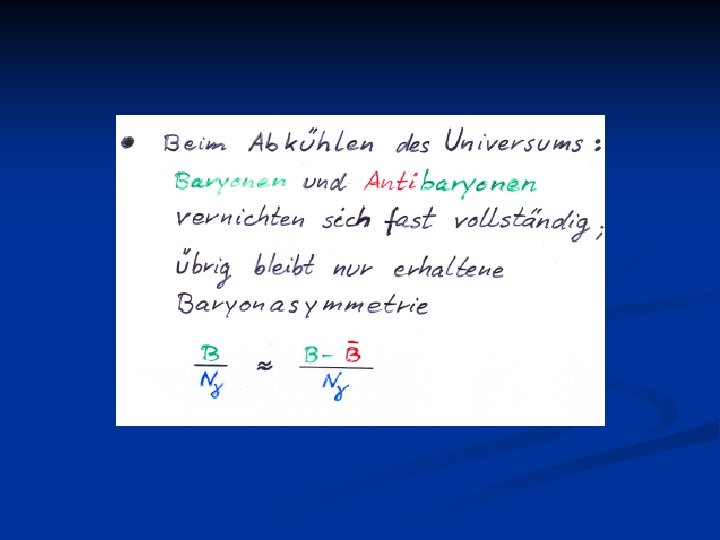 • Beim Abkühlen des Universums:
Baryonen und Antibaryonen
vernichten sich fast vollständig;
übrig bleibt nur erhaltene
Baryonasymmetrie
B/Nγ ≈ (B - B̄)/Nγ